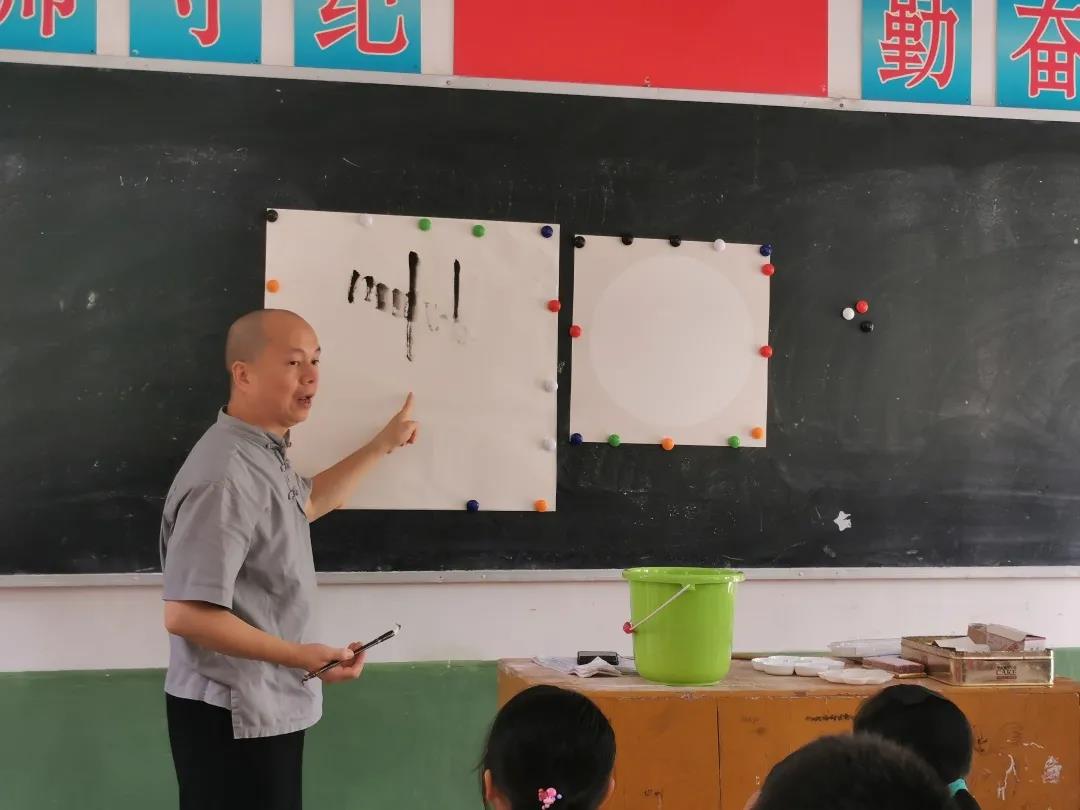 师守纪 勤奋
CAKE